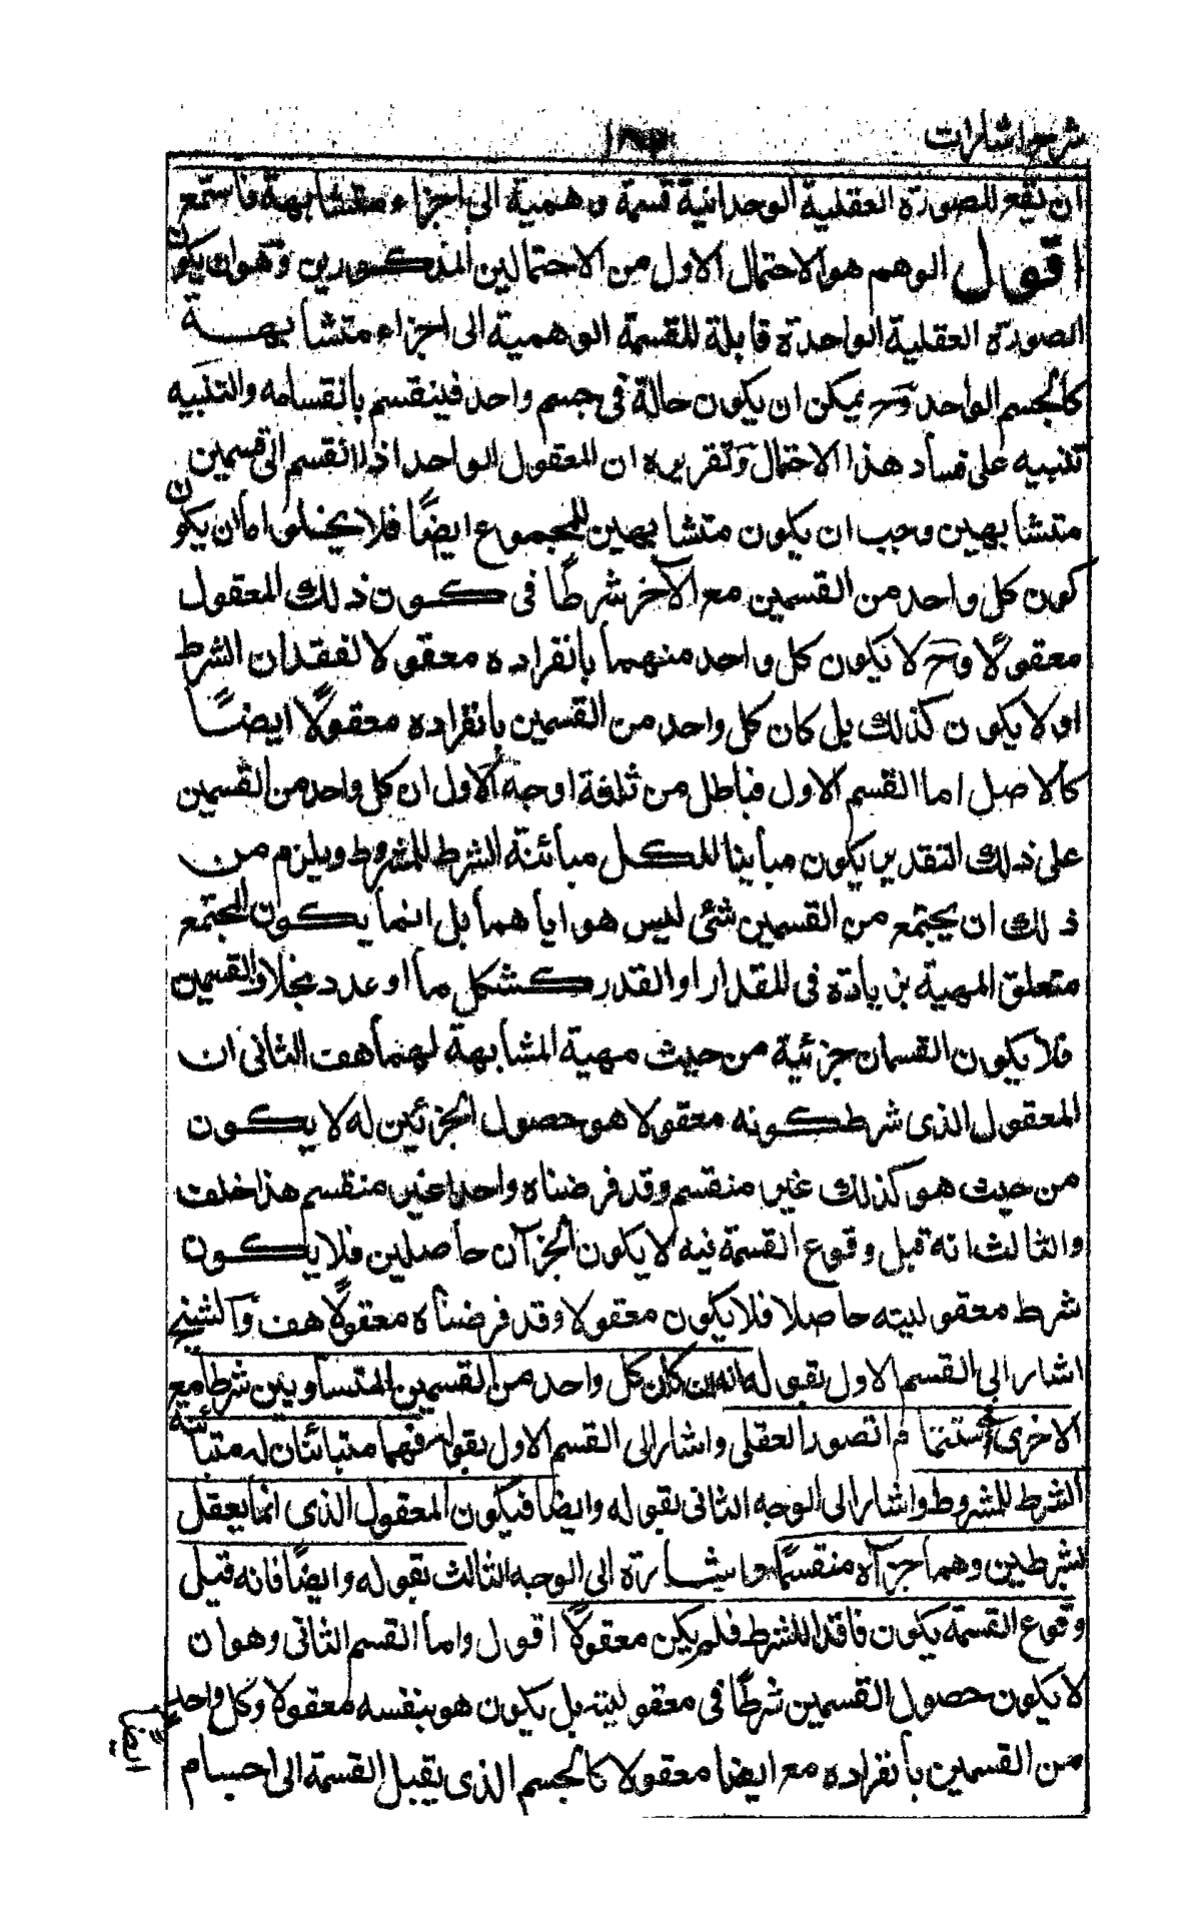 شرح اشارات
ان تقع للصورة العقلية الوحدانية قسمة وهمية الى اجزاء متشابهة فاستمع
اقول الوهم هو الاحتمال الاول من الاحتمالين المذكورين وهو ان يكون
الصورة العقلية الواحدة قابلة للقسمة الوهمية الى اجزاء متشابهة
كالجسم الواحد وح يمكن ان يكون حالة فى جسم واحد فينقسم بانقسامه والتنبيه
تنبيه على فساد هذا الاحتمال وتقريره ان المعقول الواحد اذا انقسم الى قسمين
متشابهين وجب ان يكون متشابهين للمجموع ايضًا فلا يخلو اما ان يكون
كون كل واحد من القسمين مع الآخر شرطًا فى كون ذلك المعقول
معقولًا وح لا يكون كل واحد منهما بانفراده معقولا لفقدان الشرط
او لا يكون كذلك بل كان كل واحد من القسمين بانفراده معقولًا ايضًا
كالاصل اما القسم الاول فباطل من ثلثة اوجه الاول ان كل واحد من القسمين
على ذلك التقدير يكون مباينا للكل مبائنة الشرط للمشروط ويلزم من
ذلك ان يجتمع من القسمين شئ ليس هو اياهما بل انما يكون المجتمع
متعلق المهية بزيادة فى المقدار او القدر كشكل ما او عدد بخلاف القسمين
فلا يكون القسمان جزئية من حيث مهية المشابهة لهما هف الثانى ان
المعقول الذى شرط كونه معقولا هو حصول الجزئين له لا يكون
من حيث هو كذلك غير منقسم وقد فرضناه واحدا غير منقسم هذا خلف
والثالث انه قبل وقوع القسمة فيه لا يكون الجزآن حاصلين فلا يكون
شرط معقوليته حاصلا فلا يكون معقولا وقد فرضناه معقولًا هف والشيخ
اشار الى القسم الاول بقوله انه ان كان كل واحد من القسمين المتساويين شرطا مع
الاخرى استتم التصور العقلى واشار الى القسم الاول بقوله فهما متبائنان له متبائنة
الشرط للمشروط واشار الى الوجه الثانى بقوله وايضا فيكون المعقول الذى انما يعقل
بشرطين وهما جزآه منقسمًا واشارة الى الوجه الثالث بقوله وايضًا فانه قبل
وقوع القسمة يكون فاقدا للشرط فلم يكن معقولًا اقول واما القسم الثانى وهو ان
لا يكون حصول القسمين شرطًا فى معقوليته بل يكون هو بنفسه معقولا وكل واحد
من القسمين بانفراده مع ايضا معقولا كالجسم الذى يقبل القسمة الى اجسام